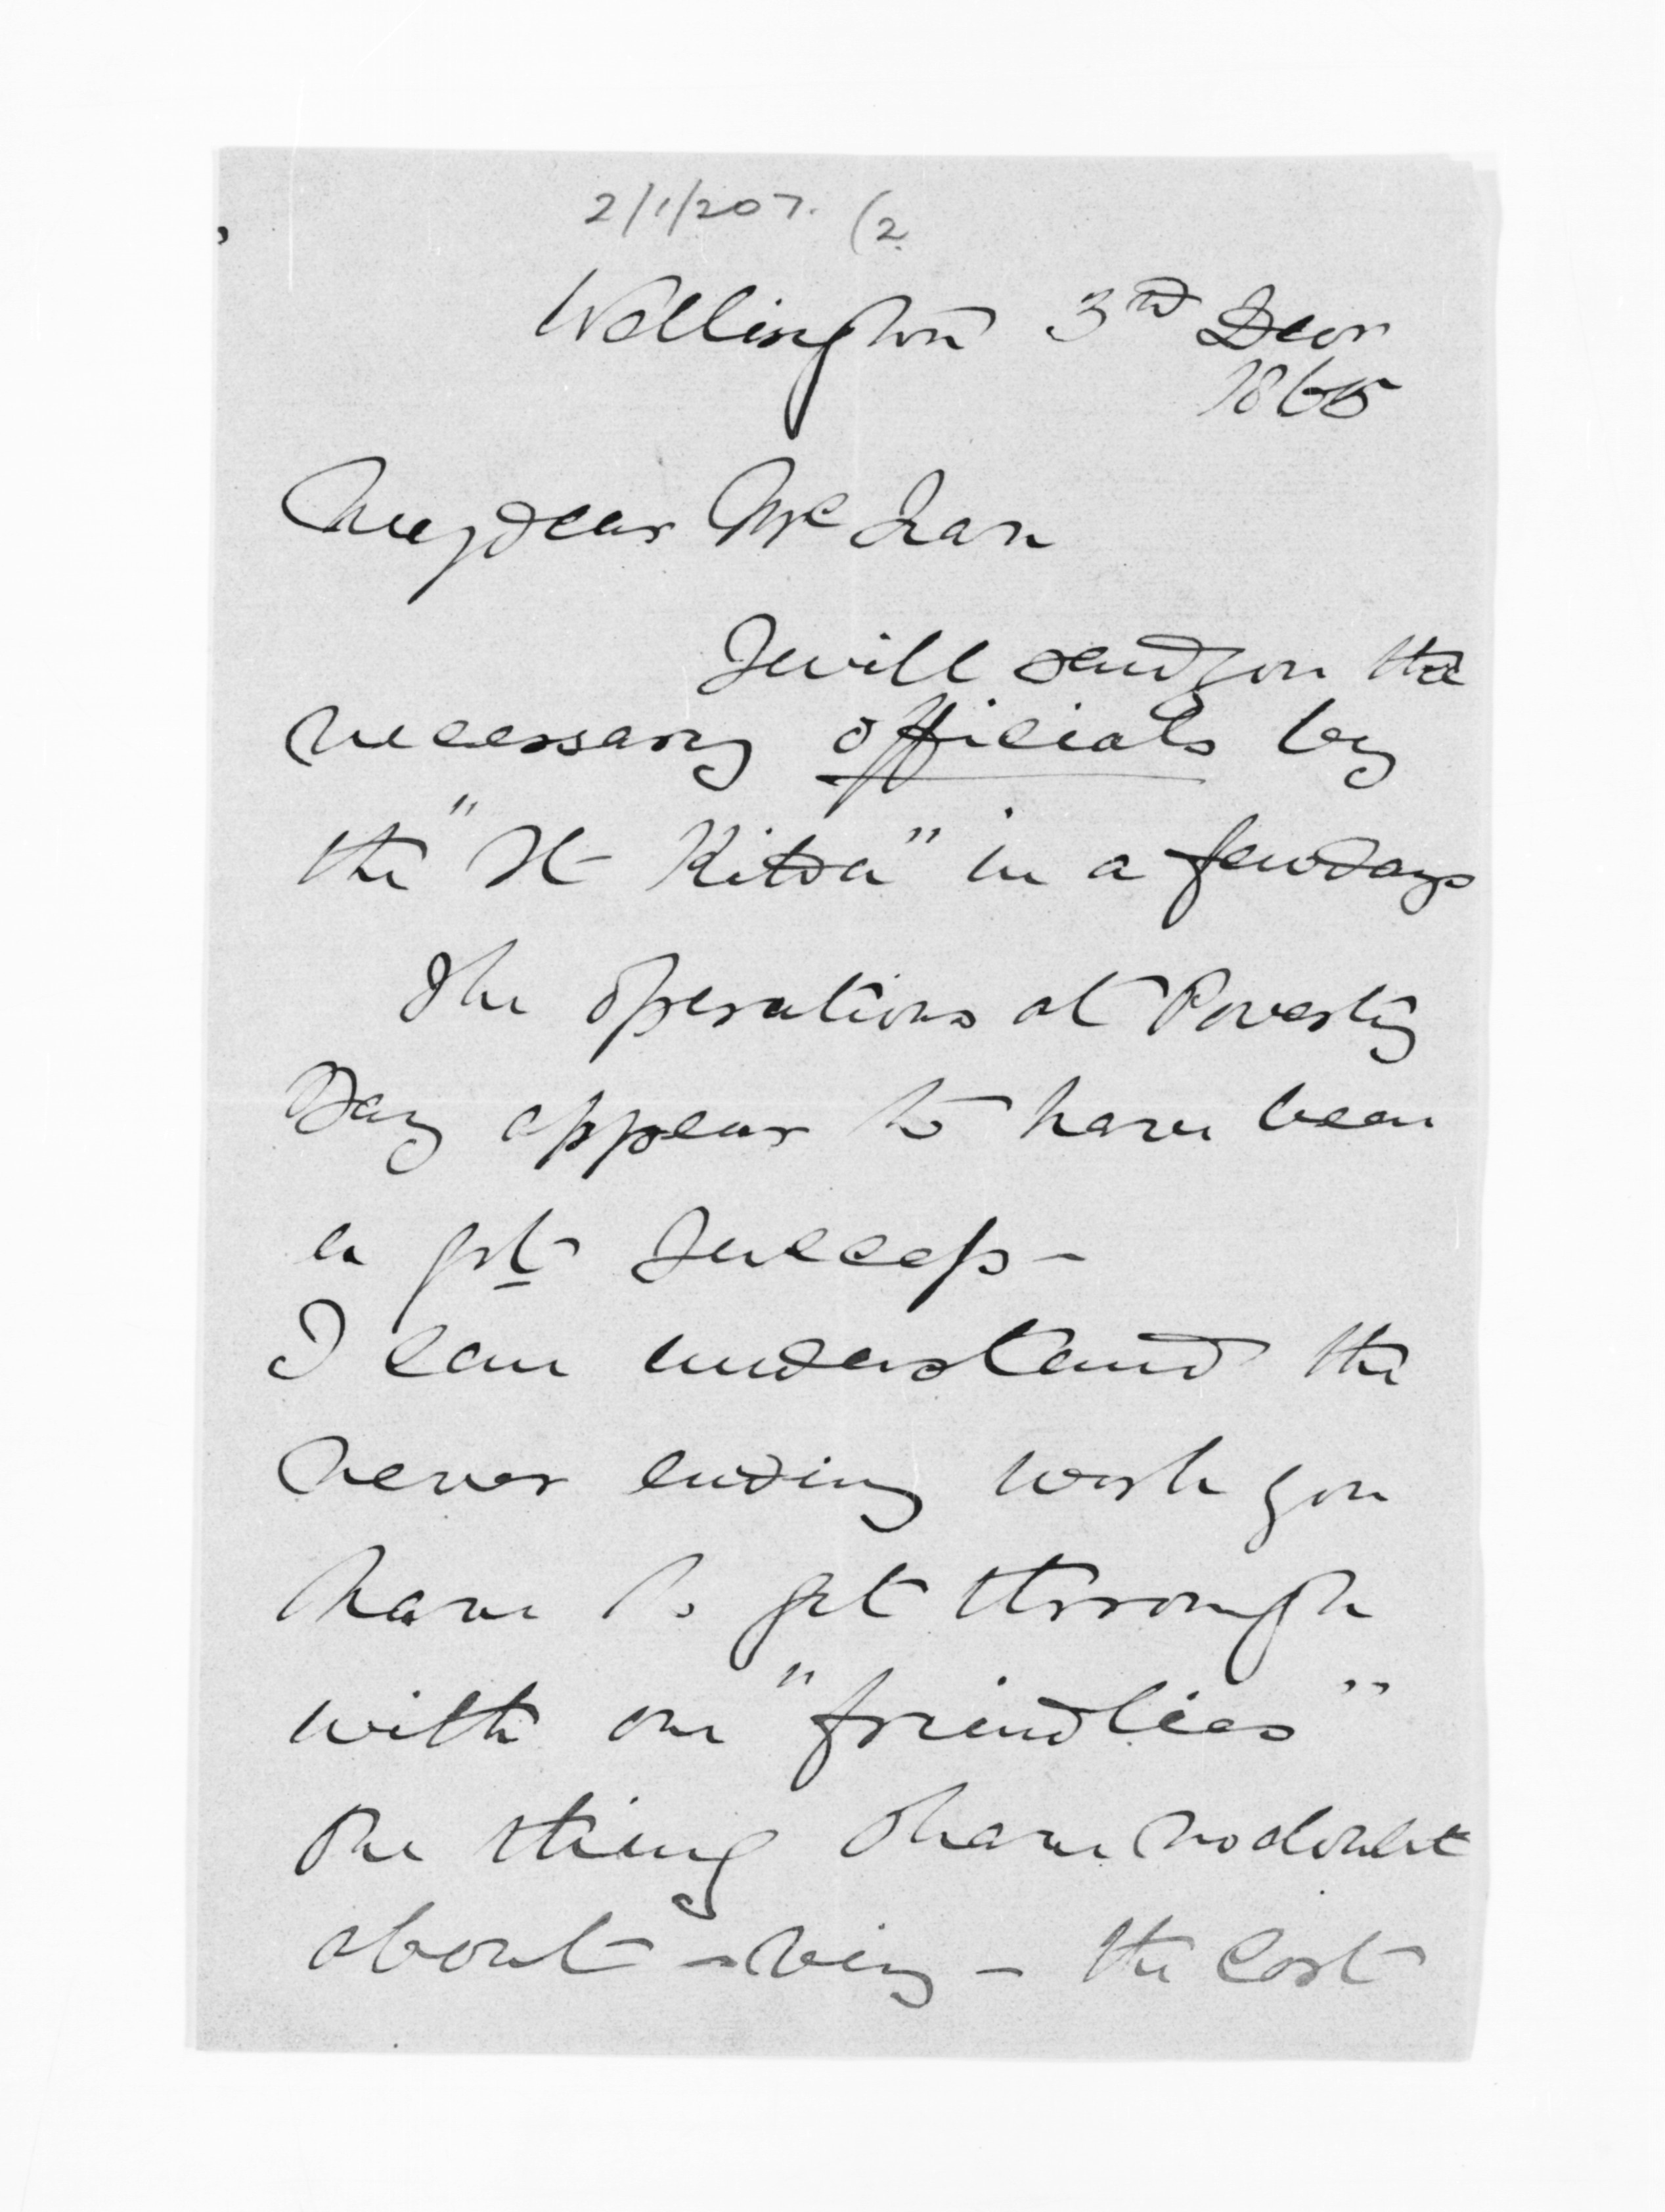 2/1/207. (2.
Wellington 3rd Decr
1865
My dear McLean
I will send you the
necessary officials by
the "St Kilda" in a few days
The operations at Poverty
Bay appear to have been
a grt success -
I can understand the
never ending work you
have to get through
with our "friendlies"
One thing I have no doubt
about - viz - the cost